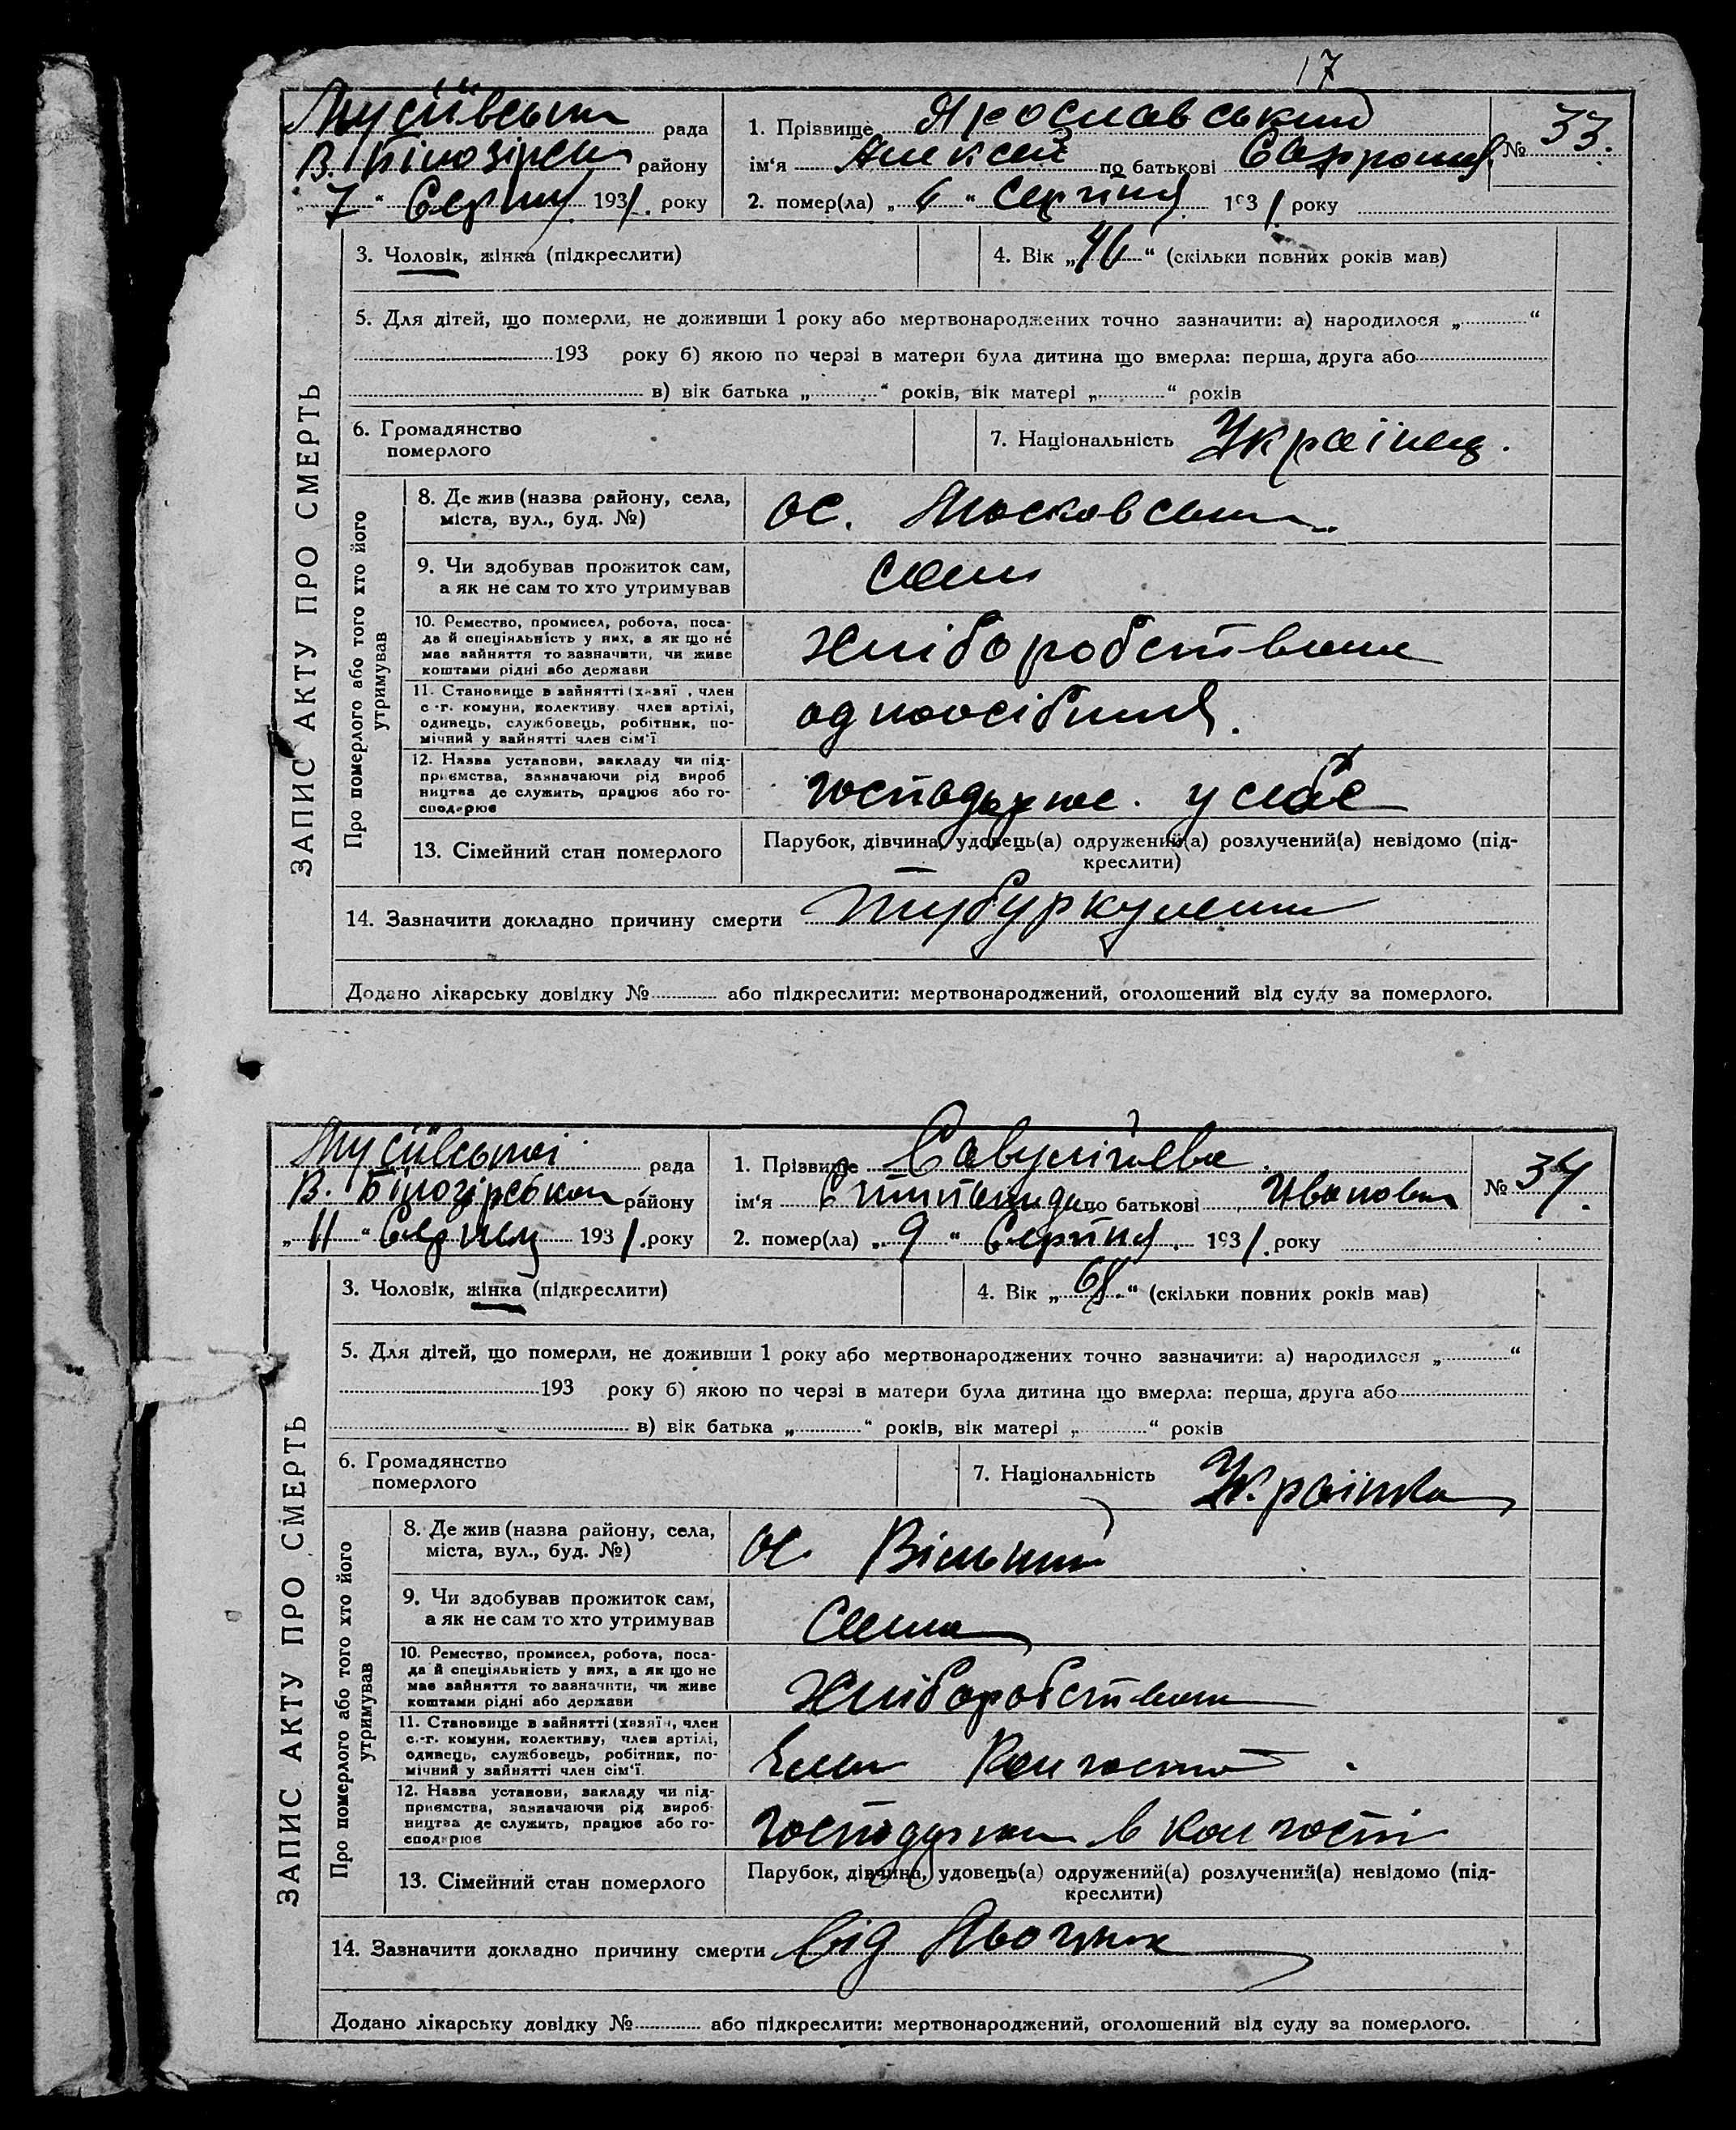 17
Мусіївської рада
В. Білозірськ району
„ 7 “ Серпня 1931. року
1. Прізвище Ярославський
ім‘я Алексей по батькові Сафронів
№ 33.
2. помер(ла) „ 6 “ Серпня 1931 року
3. Чоловік, жінка (підкреслити)
4. Вік „46“ (скільки повних років мав)
5. Для дітей, що померли, не доживши 1 року або мертвонароджених точно зазначити: а) народилося „ “
193 року б) якою по черзі в матери була дитина що вмерла: перша, друга або
в) вік батька „ “ років, вік матері „ “ років
6. Громадянство
померлого
7. Національність Українец.
ЗАПИС АКТУ ПРО СМЕРТЬ
Про померлого або того хто його
утримував
8. Де жив (назва району, села,
міста, вул., буд. №)
ос. Московський
9. Чи здобував прожиток сам,
а як не сам то хто утримував
сам
10. Ремество, промисел, робота, поса-
да й специіяльність у них, а як що не
має зайняття то зазначити, чи живе
коштами рідні або держави
хліборобством
11. Становище в зайнятті (хазяї , член
с.-г. комуни, колективу член артілі,
одинець, службовець, робітник, по-
мічний у зайнятті член сім‘ї
одноосібник.
12. Назва установи, закладу чи під-
приємства, зазначаючи рід вироб
ництва де служить, працює або го-
сподарює
господарює. у себе
13. Сімейний стан померлого
Парубок, дівчина, удовець(а) одружений(а) розлучений(а) невідомо (під-
креслити)
14. Зазначити докладно причину смерти Тубуркульоз
Додано лікарську довідку № або підкреслити: мертвонароджений, оголошений від суду за померлого.
Мусіївської рада
В. Білозірського району
„ 11 “ Серпня 1931. року
1. Прізвище
ім‘я по батькові Ивановна
№ 34.
2. помер(ла) „ 9 “ Серпня 1931. року
3. Чоловік, жінка (підкреслити)
4. Вік „68.“ (скільки повних років мав)
5. Для дітей, що померли, не доживши 1 року або мертвонароджених точно зазначити: а) народилося „ “
193 року б) якою по черзі в матери була дитина що вмерла: перша, друга або
в) вік батька „ “ років, вік матері „ “ років
6. Громадянство
померлого
7. Національність Українка
ЗАПИС АКТУ ПРО СМЕРТЬ
Про померлого або того хто його
утримував
8. Де жив (назва району, села,
міста, вул., буд. №)
ос. Вільний
9. Чи здобував прожиток сам,
а як не сам то хто утримував
Сама
10. Ремество, промисел, робота, поса-
да й специіяльність у них, а як що не
має зайняття то зазначити, чи живе
коштами рідні або держави
хліборобством
11. Становище в зайнятті (хазяїн, член
с.-г. комуни, колективу, член артілі,
одинець, службовець, робітник, по-
мічний у зайнятті член сім‘ї.
Член Колгоспу
12. Назва установи, закладу чи під-
приємства, зазначаючи рід вироб-
ництва де служить, працює або го-
сподарює
в колгоспі
13. Сімейний стан померлого
Парубок, дівчина, удовець(а) одружений(а) розлучений(а) невідомо (під-
креслити)
14. Зазначити докладно причину смерти від
Додано лікарську довідку № або підкреслити: мертвонароджений, оголошений від суду за померлого.